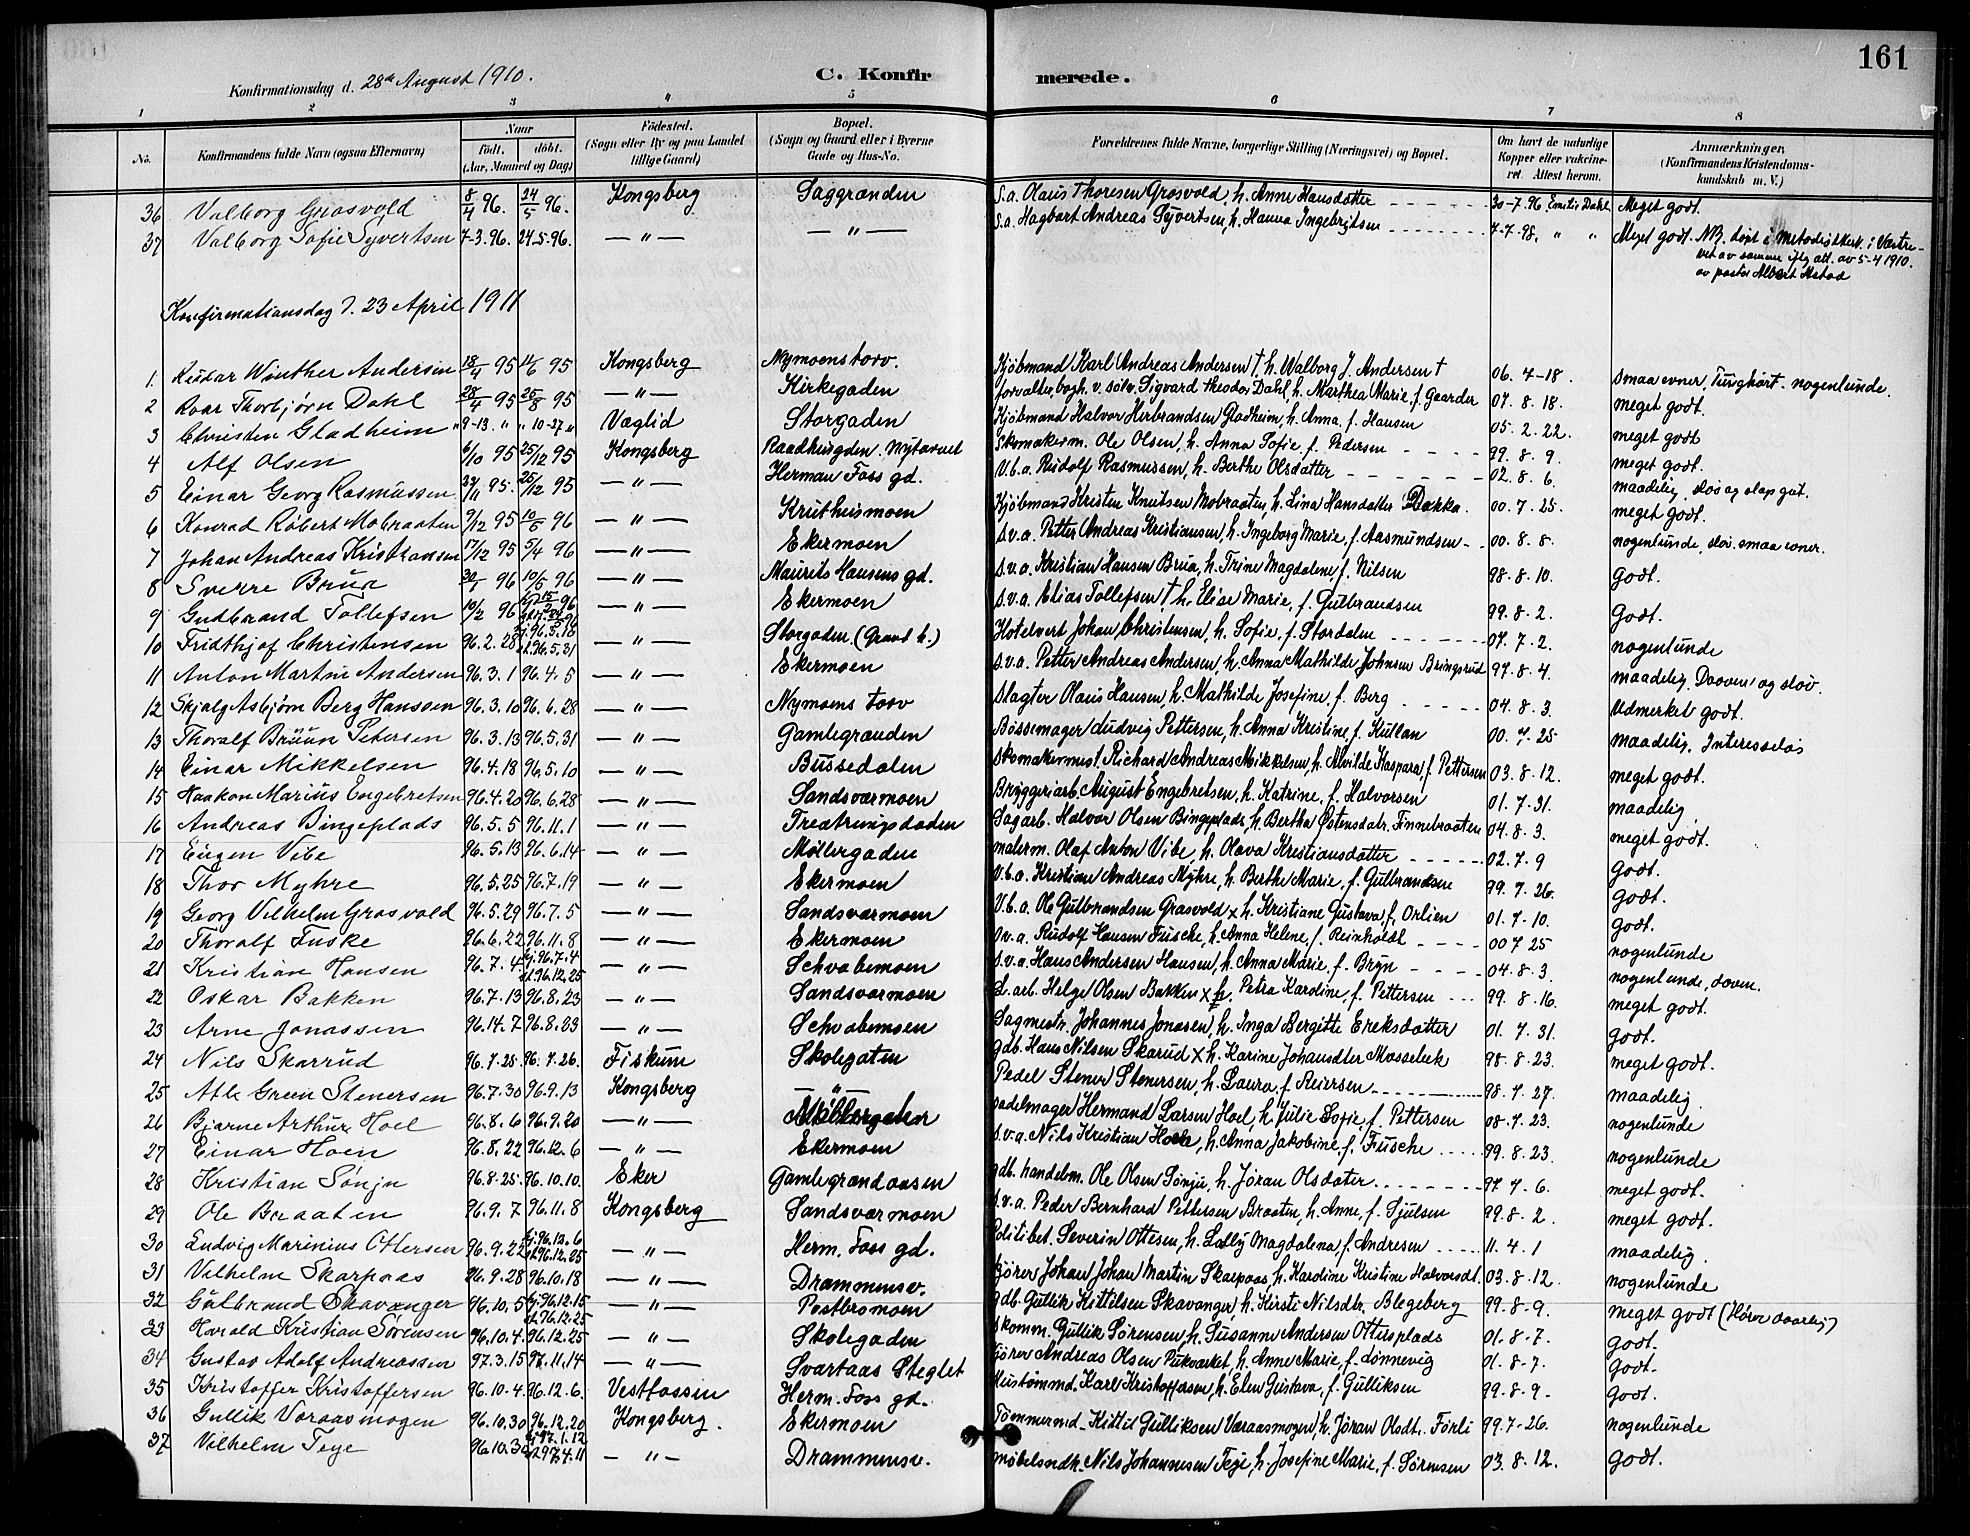 161
Konfirmationsdag d. 28de August 1910.
C. Konfirmerede.
1 2 3 4 5 6 7 8
No. Konfirmandens fulde Navn (ogsaa Efternavn) Naar født. døbt. (Aar, Maaned og Dag) Fødested. (Sogn eller By og paa Landet tillige Gaard) Bopæl. (Sogn og Gaard eller i Byerne Gade og Hus-No. Forældrenes fulde Navne, borgerlige Stilling (Næringsvei) og Bopæl. Om havt de naturlige Kopper eller vakcineret. Attest herom. Anmærkninger. (Konfirmandens Kristendomskundskab m. V.)
36 Valborg Grosvold 8/4 96. 24/5 96. Kongsberg Saggrænden S.a. Olaus Thoresen Grosvold, h. Anne Hansdatter 30-7-96 Emilie Dahl Meget godt.
37 Valborg Sofie Syvertsen 7-3.96. 24-5-96. — " — — " — S.a. Hagbart Andreas Syvertsen, h. Hanna Ingebrigtsen 7-7-98. " " Meget godt. NB. døpt i Metodistkirk. i Vestre-
av samme iflg att. av 5-4 1910.
av pastor Albert
Konfirmationsdag d. 23 April 1911
1. Reidar Winther Andersen 18/4 95 11/6 95 Kongsberg Nymoens torv. Kjøbmand Karl Andreas Andersen † h. Walborg J. Andersen † 06. 4-18. smaa evner, Tunghørt. nogenlunde.
2 Roar Thorbjørn Dahl 28/4 95 25/8 95 — " — Kirkegaden forvalter, bogh. v. sølv. Sigvard Theodor Dahl, h. Marthea Marie, f. Gaarder 07. 8. 18. meget godt.
3 Christen Gladheim " 9-13. " " 10-27 " Væglid Storgaden Kjøbmand Halvor Herbrandsen Gladheim, h. Anna, f. Hansen 05. 2. 22. meget godt
4 Alf Olsen 6/10 95 25/12 95 Kongsberg Raadhusgden. Nytorvet Skomakerm. Ole Olsen, h. Anna Sofie f. Pedersen 99. 8. 9. meget godt.
5 Einar Georg Rasmussen 27/11 95. 25/12 95 — " — Herman Foss gd. V.b.a. Rudolf Rasmussen, h. Berthe Olsdatter 02. 8. 6. maadelig, sløv og slap gut.
6 Konrad Robert Mobraaten 9/12 95 10/5 96 — " — Kruthusmoen Kjøbmand Kristen Knutsen Mobraaten, h. Lina Hansdatter Dokka. 00. 7. 25. meget godt.
7 Johan Andreas Kristiansen 17/12 95 5/4 96 — " — Ekermoen S.v.a. Petter Andreas Kristiansen, h. Ingeborg Marie, f. Aasmundsen 00. 8. 8. nogenlunde, sløv. smaa evner.
8 Sverre Brua 30/1 96 10/5 96 — " — Maurits Hansens gd. S.v.a. Kristian Hansen Brua, h. Trine Magdalene f. Nilsen 98. 8. 10. Godt.
9 Gudbrand Tollefsen 10/2 96 — " — Ekermoen S.v.a. Elias Tollefsen † h. Elise Marie, f. Gulbrandsen 99. 8. 2. Godt.
10 Fridthjof Christensen 96. 2. 28 hj. 96. 5. 18 st. 96. 5. 31 — " — Storgaden. (Grand h.) Hotelvert Johan Christensen, h. Sofie, f. Stordalm 07. 7. 2. nogenlunde
11 Anton Martin Andersen 96. 3. 1 96. 4. 5 — " — Ekermoen S.v.a. Petter Andreas Andersen, h. Anna Mathilde Johnsen Bringsrud 97. 8. 4. maadelig. Doven og sløv.
12 Skjalg Asbjørn Berg Hanssen 96. 3. 10 96. 6. 28 — " — Nymoens torv Slagter Olaus Hansen, h. Mathilde Josefine, f. Berg 04. 8. 3. Udmerket godt.
13 Thoralf Bruun Petersen 96. 3. 13 96. 5. 31 — " — Gamlegrænden Bøssemager Ludvig Pettersen, h. Anna Kristine, f. Kullan 00. 7. 25 maadelig. Interesseløs
14 Einar Mikkelsen 96. 4. 18 96. 5. 10 — " — Bussedalen Skomakermst. Richard Andreas Mikkelsen, h. Alvilde Kaspara, f. Pettersen 03. 8. 12. meget godt.
15 Haakon Marius Engebretsen 96. 4. 20 96. 6. 28 — " — Sandsværmoen Bryggeriarb. August Engebretsen, h. Katrine, f. Halvorsen 01. 7. 31. maadelig
16 Andreas Bingeplads 96. 5. 5 96. 11. 1 — " — Sagarb. Halvor Olsen Bingeplads, h. Bertha Østensdatr. Finnebraaten 04. 8. 3. meget godt.
17 Eugen Vibe 96. 5. 13 96. 6. 14 — " — Møllergaden malerm. Olaf Anton Vibe, h. Olava Kristiansdatter 02. 7. 9 Godt.
18 Thor Myhre 96. 5. 25 96. 7. 19 — " — Ekermoen V.b.a. Kristian Andreas Myhre, h. Berthe Marie, f. Gulbrandsen 99. 7. 26. Godt.
19 Georg Vilhelm Grosvold 96. 5. 29 96. 7. 5 — " — Sandsværmoen V.b.a. Ole Gulbrandsen Grosvold x h. Kristiane Gustava, f. Orlien 01. 7. 10. Godt.
20 Thoralf Fuske 96. 6. 22 96. 11. 8 — " — Ekermoen S.v.a. Rudolf Hansen Fusche, h. Anna Helene, f. Reinholdt 00 7 25 nogenlunde
21 Kristian Hansen 96. 7. 4 hj. 96. 7. 4 st. 96. 12. 25 — " — Schvabemoen S.v.a. Hans Andersen Hansen, h. Anna Marie, f. Bryn 04. 8. 3. nogenlunde, doven.
22 Oskar Bakken 96. 7. 13 96. 8. 23 — " — Sandsværmoen S. arb. Helge Olsen Bakken x h. Petra Karoline, f. Pettersen 99. 8. 16. meget godt.
23 Arne Jonassen 96. 14. 7 96. 8. 23 — " — Schvabemoen Sagmestr. Johannes Jonasen, h. Inga Bergitte Ereksdatter 01. 7. 31. godt.
24 Nils Skarrud 96. 7. 25. 96. 7. 26. Fiskum Skolegaten gdb. Hans Nilsen Skarud x h. Karine Johansdter Mossebæk 98. 8. 23. meget godt.
25 Atle Green Stenersen 96. 7. 30 96. 9. 13 Kongsberg — " — Pedel Stener Stenersen, h. Laura, f. Reiersen 98. 7. 27. maadelig.
26 Bjarne Arthur Hoel 96. 8. 6 96. 9. 20 — " — Møllergaden sadelmager Hermand Larsen Hoel, h. Julie Sofie, f. Pettersen 08. 7. 23. nogenlunde
27 Einar Hoen 96. 8. 22 96. 12. 6 — " — Ekermoen S.v.a. Nils Kristian Hoen, h. Anna Jakobine, f. Fusche 99. 8. 23. nogenlunde
28 Kristian Sønju 96. 8. 25. 96. 10. 10. Eker Gamlegrændaasen gdb. handelm. Ole Olsen Sønju, h. Jøran Olsdater 97 7. 6. meget godt.
29 Ole Braaten 96. 9. 7 96. 11. 8 Kongsberg Sandsværmoen S.v.a. Peder Bernhard Pettersen Braaten, h. Anne, f. Gjulsen 99. 8. 2. meget godt.
30 Ludvig Marinius Ottersen 96. 9. 22 hj. 96. 12. 6 st. 96. 12. 25 — " — Herm. Foss gd. Politibet. Severin Ottesen, h. Lally Magdalena, f. Andresen 11. 4. 1 maadelig.
31 Vilhelm Skarpaas 96. 9. 28 96. 10. 18 — " — Drammensv. Kjører Johan Johan Martin Skarpaas, h. Karoline Kristine Halvorsdt. 03. 8. 12. nogenlunde
32 Gulbrand Skavanger 96. 10. 5 hj. 96. 12. 15 st. 96. 12. 25 — " — Postbromoen gdb. Gullik Kittelsen Skavanger, h. Kirsti Nilsdtr. Blegeberg 99. 8. 9. meget godt (Hører daarlig)
33 Harald Kristian Sørensen 96. 10. 4. 96. 12. 25 — " — Skolegaden Skomm. Gullik Sørensen, h. Susanne Andersen Ottersplads 01. 8. 7. Godt.
34 Gustav Adolf Andreassen 97. 3. 15 97. 11. 14 — " — Svartaas Steglet Kjører Andreas Olsen Pukverket, h. Anne Marie, f. Lønnevig 01. 8. 7. Godt.
35 Kristoffer Kristoffersen 96. 10. 4. 96. 12. 6. Vestfossen Herm. Foss gd. Hustømmd. Karl Kristoffersen, h. Elen Gustava, f. Gulliksen 99. 8. 9 - Godt.
36 Gullik Varaasmogen 96. 10. 30 96. 12. 20 Kongsberg. Ekermoen Tømmermd. Kittil Gulliksen Væraasmogen, h. Jøran Olsdt. Førli 99. 7-26. nogenlunde
37 Vilhelm Teje 96. 10. 30 hj. 97. 1. 12 st. 97. 4. 11 — " — Drammensv. møbelsndk. Nils Johannesen Teje, h. Josefine Marie, f. Sørensen 03. 8. 12. Godt.